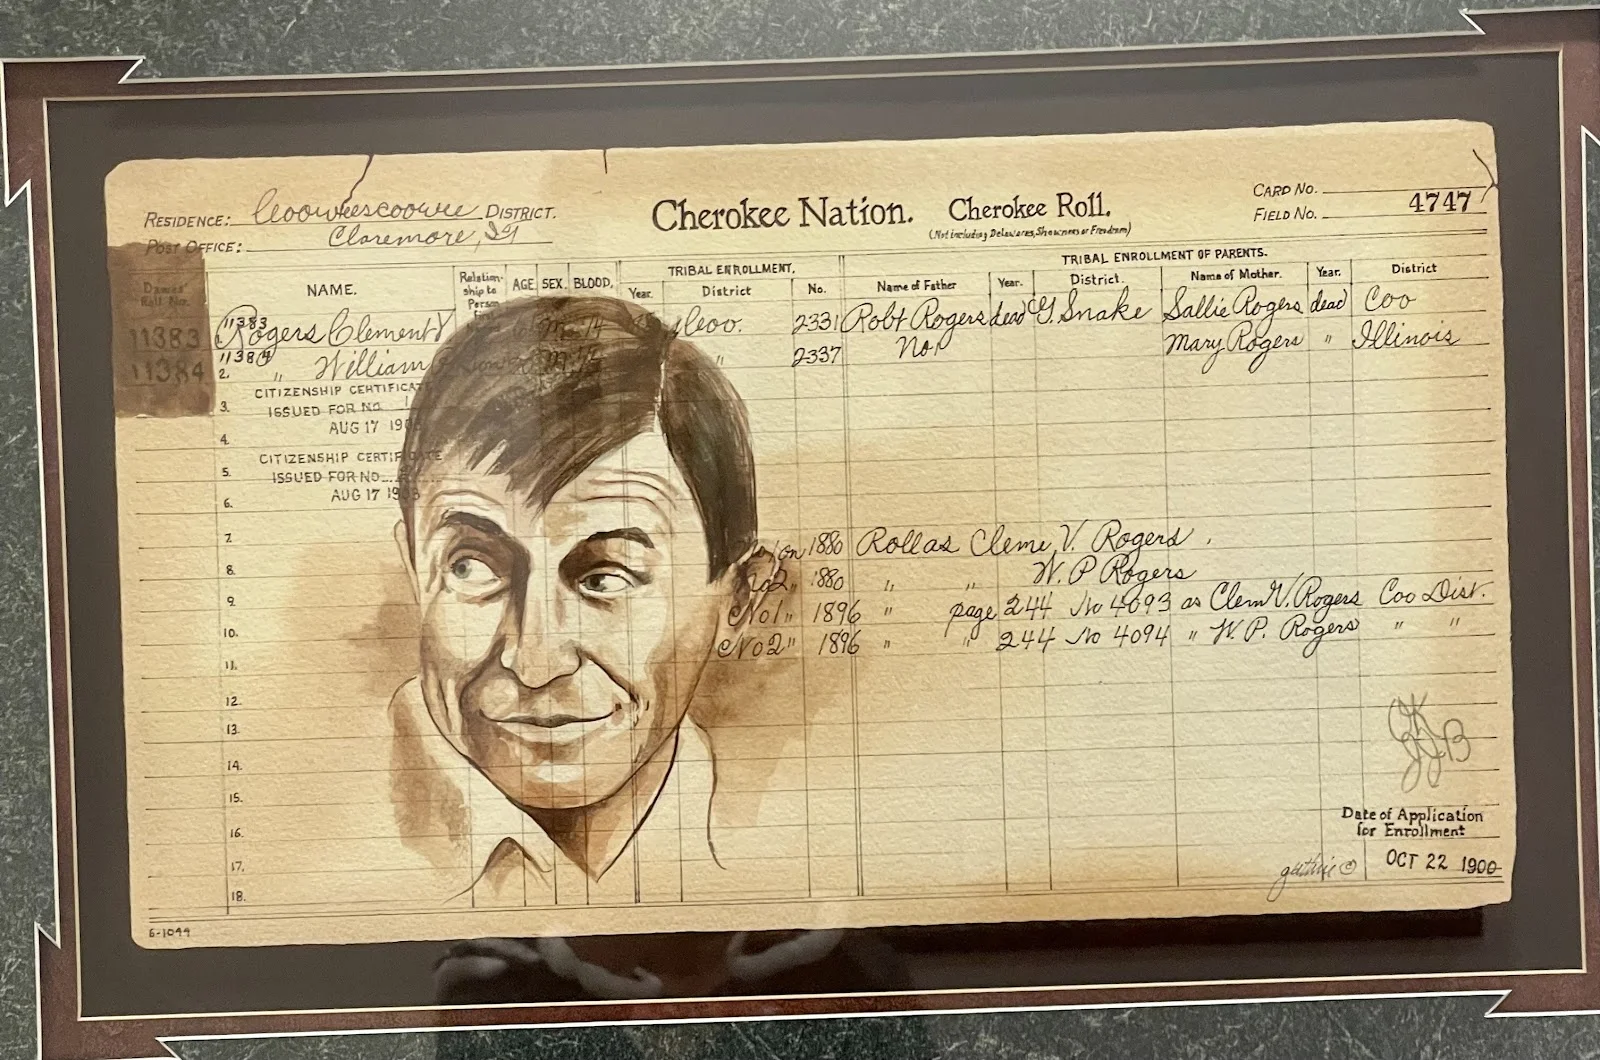 RESIDENCE: Cooweescoowee DISTRICT.
POST OFFICE: Claremore, IT
Cherokee Nation. Cherokee Roll.
(Not including Delawares, Shawnees or Freedmen)
CARD NO.
FIELD NO. 4747
Dawes' Roll No.
NAME.
Relationship to Person
AGE. SEX. BLOOD.
TRIBAL ENROLLMENT.
Year. District No.
TRIBAL ENROLLMENT OF PARENTS.
Name of Father Year. District. Name of Mother. Year. District
11383 11383 Rogers Clement V Coo. 2331 Robt Rogers dead G. Snake Sallie Rogers dead Coo
11384 11384 2. " William " 2337 No1 Mary Rogers " Illinois
CITIZENSHIP CERTIFICATE
3. ISSUED FOR NO.
AUG 17 190
4.
CITIZENSHIP CERTIFICATE
5. ISSUED FOR NO.
AUG 17 190
6.
7. No1 on 1880 Roll as Clem V. Rogers.
8. No2 " 1880 " " W. P Rogers
9. No1 " 1896 " page 244 No 4093 as Clem V. Rogers Coo Dist.
10. No2 " 1896 " " 244 No 4094 " W. P. Rogers " "
11.
12.
13.
14.
15.
16.
17.
18.
Date of Application
for Enrollment
OCT 22 1900
guthrie ©
6-1044